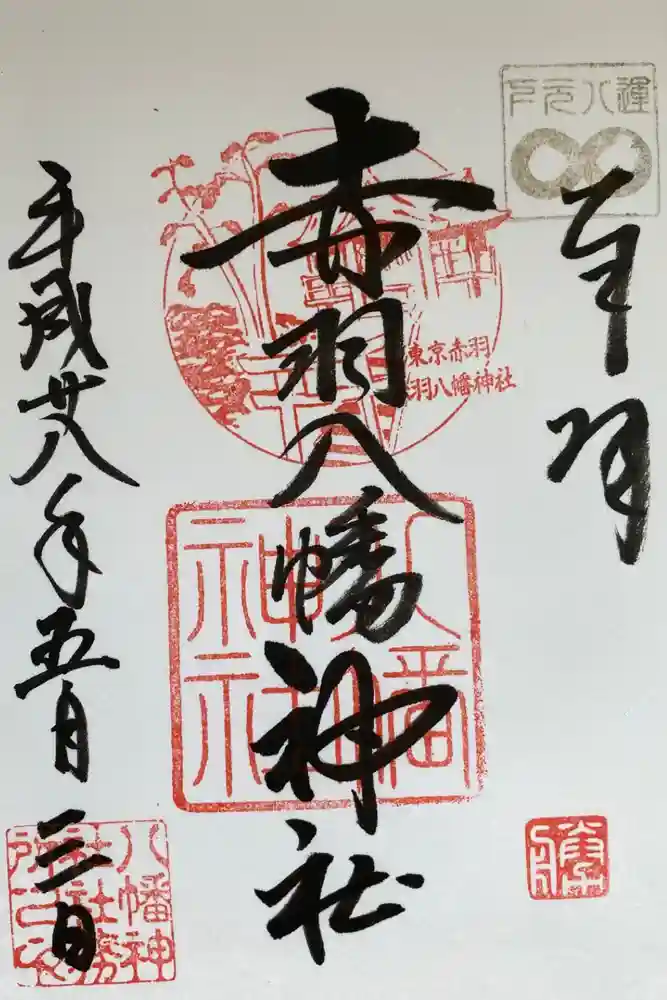 奉拝
赤羽八幡神社
平成廿八年五月三日
東京赤羽
赤羽八幡神社
八幡
神社
八幡神
社社務